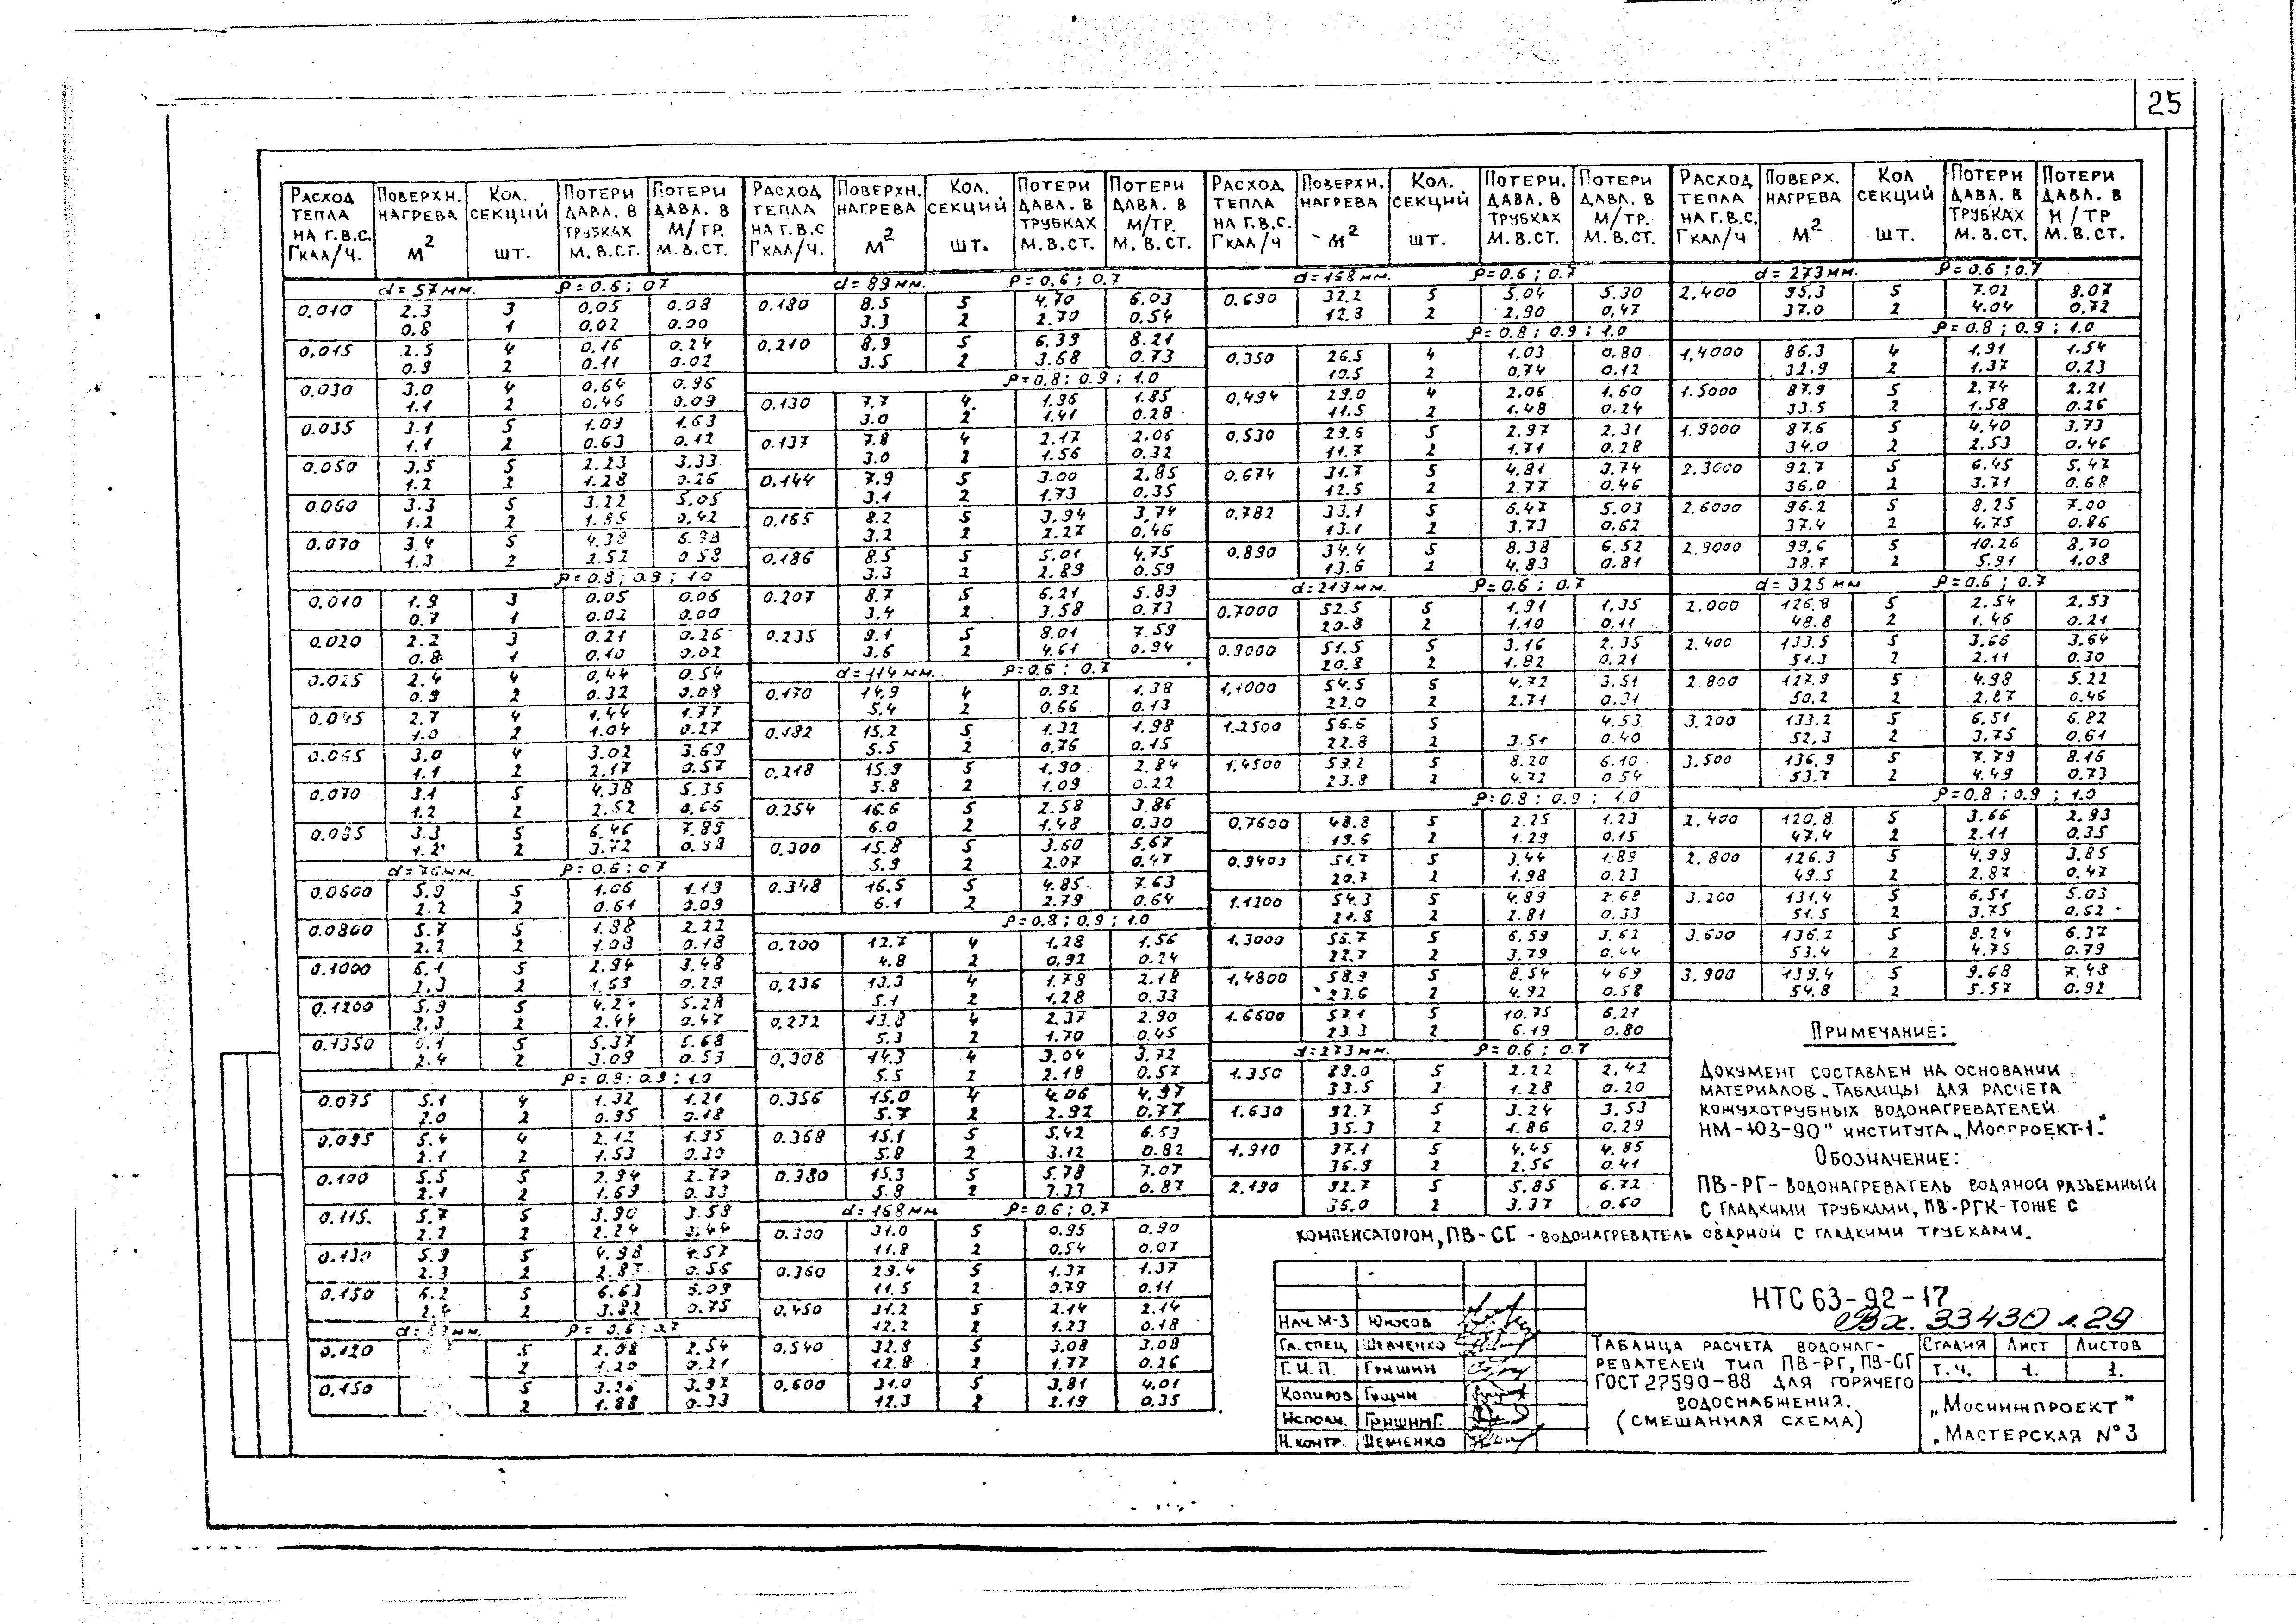 25
РАСХОД ТЕПЛА НА Г.В.С. ГКАЛ/Ч. | ПОВЕРХН. НАГРЕВА М² | КОЛ. СЕКЦИЙ ШТ. | ПОТЕРИ ДАВЛ. В ТРУБКАХ М.В.СТ. | ПОТЕРИ ДАВЛ. В М/ТР. М.В.СТ.
d=57мм. ρ=0.6; 0.7
0.010 2.3 3 0.05 0.08
0.8 1 0.02 0.00
0.015 2.5 4 0.16 0.24
0.9 2 0.11 0.02
0.030 3.0 4 0.64 0.96
1.1 2 0.46 0.09
0.035 3.1 5 1.09 1.63
1.1 2 0.63 0.12
0.050 3.5 5 2.23 3.33
1.2 2 1.28 0.26
0.060 3.3 5 3.22 5.05
1.2 2 1.85 0.42
0.070 3.4 5 4.38
1.3 2 2.52 0.58
ρ=0.8; 0.9; 1.0
0.010 1.9 3 0.05 0.06
0.7 1 0.02 0.00
0.020 2.2 3 0.21 0.26
0.8 1 0.10 0.02
0.025 2.4 4 0.44 0.54
0.9 2 0.32 0.08
0.045 2.7 4 1.44 1.77
1.0 2 1.04 0.27
3.0 4 3.02 3.69
1.1 2 2.17 0.57
0.070 3.1 5 4.38 5.35
1.2 2 2.52 0.66
0.085 3.3 5 6.46 7.89
1.2 2 3.72
d=76мм. ρ=0.6; 0.7
5.9 5 1.06 1.13
2.2 2 0.61 0.09
0.0800 5.7 5 2.22
2.2 2 1.08 0.18
0.1000 6.1 5 2.94 3.48
2.3 2 1.69 0.29
0.1200 5.9 5 4.24 5.28
2.3 2 2.44 0.47
0.1350 6.1 5 5.37 6.68
2.4 2 3.09 0.53
ρ=0.8; 0.9; 1.0
0.075 5.1 4 1.32 1.21
2.0 2 0.95 0.18
0.095 5.4 4 2.12 1.95
2.1 2 1.53 0.30
0.100 5.5 5 2.94 2.70
2.1 2 1.69 0.33
0.115. 5.7 5 3.90 3.58
2.2 2 2.24 0.44
0.130 5.9 5 4.98 4.57
2.3 2 2.87 0.56
0.150 6.2 5 6.63 6.09
2.4 2 3.82 0.75
мм. ρ=0.6; 0.7
0.120 5 2.08 2.54
2 1.20 0.21
0.150 5 3.26 3.97
2 1.88 0.33
РАСХОД ТЕПЛА НА Г.В.С ГКАЛ/Ч. | ПОВЕРХН. НАГРЕВА М² | КОЛ. СЕКЦИЙ ШТ. | ПОТЕРИ ДАВЛ. В ТРУБКАХ М.В.СТ. | ПОТЕРИ ДАВЛ. В М/ТР. М.В.СТ.
d=89мм. ρ=0.6; 0.7
0.180 8.5 5 4.70 6.03
3.3 2 2.70 0.54
0.210 8.9 5 6.39 8.21
3.5 2 3.68 0.73
ρ=0.8; 0.9; 1.0
0.130 7.7 4 1.96 1.85
3.0 2 1.41 0.28
0.137 7.8 4 2.17 2.06
3.0 2 1.56 0.32
0.144 7.9 5 3.00 2.85
3.1 2 1.73 0.35
0.165 8.2 5 3.94 3.74
3.2 2 2.27 0.46
0.186 8.5 5 5.01 4.75
3.3 2 2.89 0.59
0.207 8.7 5 6.21 5.89
3.4 2 3.58 0.73
0.235 9.1 5 8.01 7.59
3.6 2 4.61 0.94
d=114мм. ρ=0.6; 0.7
0.170 14.9 4 0.92 1.38
5.4 2 0.66 0.13
0.182 15.2 5 1.32 1.98
5.5 2 0.76 0.15
0.218 15.9 5 1.90 2.84
5.8 2 1.09 0.22
0.254 16.6 5 2.58 3.86
6.0 2 1.48 0.30
0.300 15.8 5 3.60 5.67
5.9 2 2.07 0.47
0.348 16.5 5 4.85 7.63
6.1 2 2.79 0.64
ρ=0.8; 0.9; 1.0
0.200 12.7 4 1.28 1.56
4.8 2 0.92 0.24
0.236 13.3 4 1.78 2.18
5.1 2 1.28 0.33
0.272 13.8 4 2.37 2.90
5.3 2 1.70 0.45
0.308 14.3 4 3.04 3.72
5.5 2 2.18 0.57
0.356 15.0 4 4.06 4.97
5.7 2 2.92 0.77
0.368 15.1 5 5.42 6.63
5.8 2 3.12 0.82
0.380 15.3 5 5.78 7.07
5.8 2 3.33 0.87
d=168мм ρ=0.6; 0.7
0.300 31.0 5 0.95 0.90
11.8 2 0.54 0.07
0.360 29.4 5 1.37 1.37
11.5 2 0.79 0.11
0.450 31.2 5 2.14 2.14
12.2 2 1.23 0.18
0.540 32.8 5 3.08 3.08
12.8 2 1.77 0.26
0.600 31.0 5 3.81 4.01
12.3 2 2.19 0.35
РАСХОД ТЕПЛА НА Г.В.С. ГКАЛ/Ч | ПОВЕРХН. НАГРЕВА М² | КОЛ. СЕКЦИЙ ШТ. | ПОТЕРИ. ДАВЛ. В ТРУБКАХ М.В.СТ. | ПОТЕРИ ДАВЛ. В М/ТР. М.В.СТ.
d=168мм. ρ=0.6; 0.7
0.690 32.2 5 5.04 5.30
12.8 2 2.90 0.47
ρ=0.8; 0.9; 1.0
0.350 26.5 4 1.03 0.80
10.5 2 0.74 0.12
0.494 29.0 4 2.06 1.60
11.5 2 1.48 0.24
0.530 29.6 5 2.97 2.31
11.7 2 1.71 0.28
0.674 31.7 5 4.81 3.74
12.5 2 2.77 0.46
0.782 33.1 5 6.47 5.03
13.1 2 3.73 0.62
0.890 34.4 5 8.38 6.52
13.6 2 4.83 0.81
d=219мм. ρ=0.6; 0.7
0.7000 52.5 5 1.91 1.35
20.8 2 1.10 0.11
0.9000 51.5 5 3.16 2.35
20.8 2 1.82 0.21
1.1000 54.5 5 4.72 3.51
22.0 2 2.71 0.31
1.2500 56.6 5 4.53
22.8 2 3.51 0.40
1.4500 59.2 5 8.20 6.10
23.8 2 4.72 0.54
ρ=0.8; 0.9; 1.0
0.7600 48.8 5 2.25 1.23
19.6 2 1.29 0.15
0.9400 51.7 5 3.44 1.89
20.7 2 1.98 0.23
1.1200 54.3 5 4.89 2.68
21.8 2 2.81 0.33
1.3000 56.7 5 6.59 3.61
22.7 2 3.79 0.44
1.4800 58.9 5 8.54 4.69
23.6 2 4.92 0.58
1.6600 57.1 5 10.75 6.21
23.3 2 6.19 0.80
d=273мм. ρ=0.6; 0.7
1.350 89.0 5 2.22 2.42
33.5 2 1.28 0.20
1.630 92.7 5 3.24 3.53
35.3 2 1.86 0.29
1.910 97.1 5 4.45 4.85
36.9 2 2.56 0.41
2.190 92.7 5 5.85 6.72
36.0 2 3.37 0.60
РАСХОД ТЕПЛА НА Г.В.С. ГКАЛ/Ч | ПОВЕРХ. НАГРЕВА М² | КОЛ СЕКЦИЙ ШТ. | ПОТЕРИ ДАВЛ. В ТРУБКАХ М.В.СТ. | ПОТЕРИ ДАВЛ. В М/ТР М.В.СТ.
d=273мм. ρ=0.6; 0.7
2.400 95.3 5 7.02 8.07
37.0 2 4.04 0.72
ρ=0.8; 0.9; 1.0
1.4000 86.3 4 1.91 1.54
32.9 2 1.37 0.23
1.5000 87.9 5 2.74 2.21
33.5 2 1.58 0.26
1.9000 87.6 5 4.40 3.73
34.0 2 2.53 0.46
2.3000 92.7 5 6.45 5.47
36.0 2 3.71 0.68
2.6000 96.2 5 8.25 7.00
37.4 2 4.75 0.86
2.9000 99.6 5 10.26 8.70
38.7 2 5.91 1.08
d=325мм ρ=0.6; 0.7
2.000 126.8 5 2.54 2.53
48.8 2 1.46 0.21
2.400 133.5 5 3.66 3.64
51.3 2 2.11 0.30
2.800 127.9 5 4.98 5.22
50.2 2 2.87 0.46
3.200 133.2 5 6.51 6.82
52.3 2 3.75 0.61
3.500 136.9 5 7.79 8.16
53.7 2 4.49 0.73
ρ=0.8; 0.9; 1.0
2.400 120.8 5 3.66 2.83
47.4 2 2.11 0.35
2.800 126.3 5 4.98 3.85
49.5 2 2.87 0.47
3.200 131.4 5 6.51 5.03
51.5 2 3.75 0.62
3.600 136.2 5 8.24 6.37
53.4 2 4.75 0.79
3.900 139.4 5 9.68 7.48
54.8 2 5.57 0.92
ПРИМЕЧАНИЕ:
ДОКУМЕНТ СОСТАВЛЕН НА ОСНОВАНИИ
МАТЕРИАЛОВ „ТАБЛИЦЫ ДЛЯ РАСЧЕТА
КОЖУХОТРУБНЫХ ВОДОНАГРЕВАТЕЛЕЙ
НМ-103-90" ИНСТИТУТА „МОСПРОЕКТ-1."
ОБОЗНАЧЕНИЕ:
ПВ-РГ-ВОДОНАГРЕВАТЕЛЬ ВОДЯНОЙ РАЗЪЕМНЫЙ
С ГЛАДКИМИ ТРУБКАМИ, ПВ-РГК-ТОЖЕ С
КОМПЕНСАТОРОМ, ПВ-СГ-ВОДОНАГРЕВАТЕЛЬ СВАРНОЙ С ГЛАДКИМИ ТРУБКАМИ.
НТС 63-92-17
Вх. 33430 л.29
НАЧ.М-3 ЮНУСОВ
ГЛ.СПЕЦ ШЕВЧЕНКО
Г.И.П. ГРИШИН
КОПИРОВ
ИСПОЛН. ГРИШИН Г.
Н.КОНТР. ШЕВЧЕНКО
ТАБЛИЦА РАСЧЕТА ВОДОНАГ-
РЕВАТЕЛЕЙ ТИП ПВ-РГ, ПВ-СГ
ГОСТ 27590-88 ДЛЯ ГОРЯЧЕГО
ВОДОСНАБЖЕНИЯ.
(СМЕШАННАЯ СХЕМА)
СТАДИЯ ЛИСТ ЛИСТОВ
Т.Ч. 1. 1.
„МОСИНЖПРОЕКТ"
„МАСТЕРСКАЯ №3